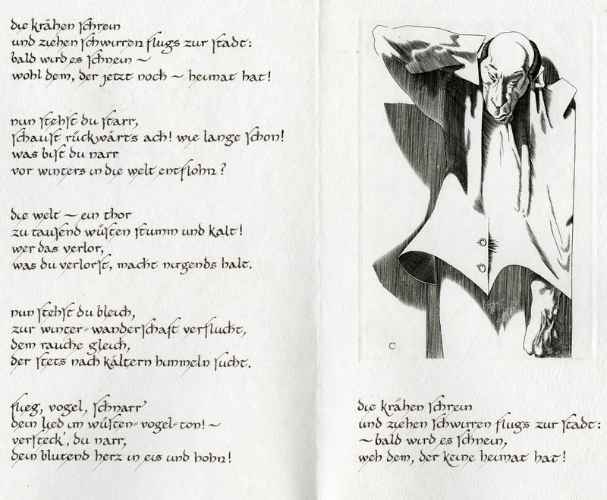 die krähen schrein
und ziehen schwirren flugs zur stadt:
bald wird es schnein ~
wohl dem, der jetzt noch ~ heimat hat!
nun stehst du starr,
schaust rückwärts ach! wie lange schon!
was bist du narr
vor winters in die welt entflohn?
die welt ~ ein thor
zu tausend wüsten stumm und kalt!
wer das verlor,
was du verlorst, macht nirgends halt.
nun stehst du bleich,
zur winter-wanderschaft verflucht,
dem rauche gleich,
der stets nach kältern himmeln sucht.
flieg, vogel, schnarr'
dein lied im wüsten-vogel-ton! ~
versteck', du narr,
dein blutend herz in eis und hohn!
C
die krähen schrein
und ziehen schwirren flugs zur stadt:
~ bald wird es schnein,
weh dem, der keine heimat hat!